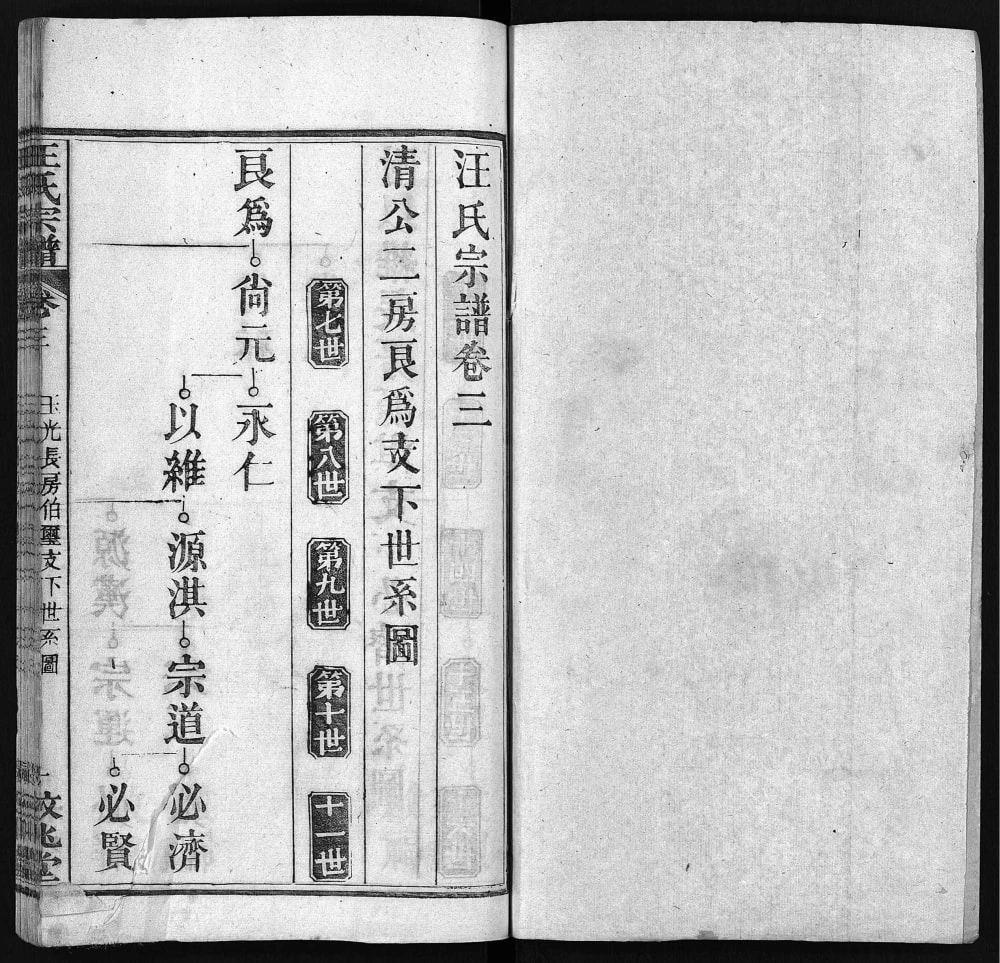 汪氏宗譜卷三
清公二房艮爲支下世系圖
第七世
第八世
第九世
第十世
十一世
艮爲
尙元
永仁
以維
源淇
宗道
必濟
必賢
汪氏宗譜
卷三
玉光長房伯璽支下世系圖
一